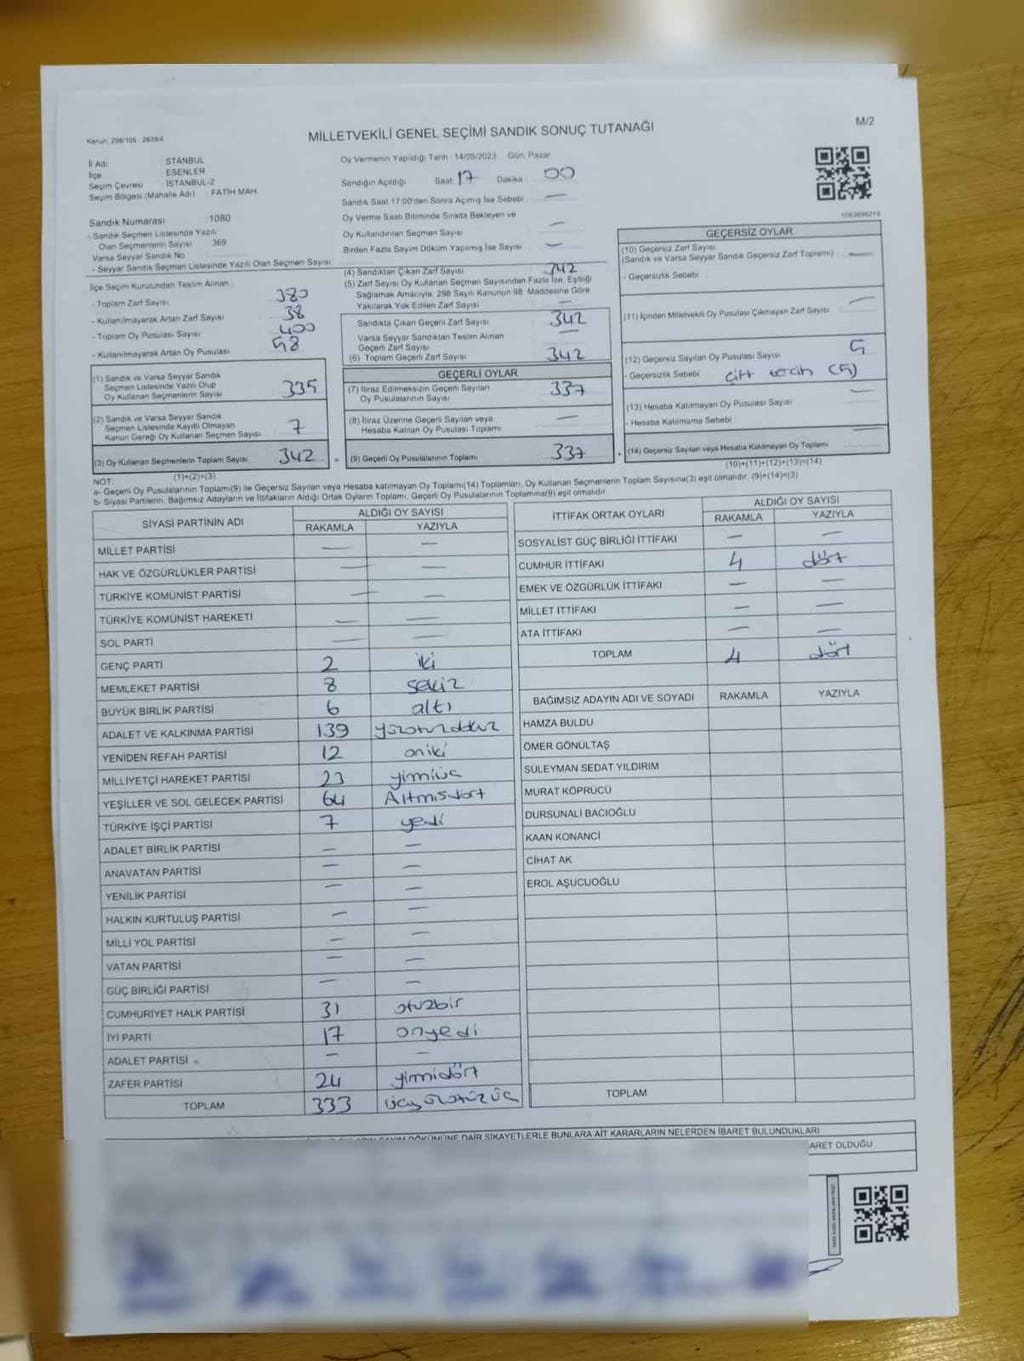 Kanun: 298/105 2839/4
MİLLETVEKİLİ GENEL SEÇİMİ SANDIK SONUÇ TUTANAĞI
M/2
İl Adı : STANBUL
İlçe : ESENLER
Seçim Çevresi : İSTANBUL-2
Seçim Bölgesi (Mahalle Adı) : FATİH MAH.
Oy Vermenin Yapıldığı Tarih : 14/05/2023 Gün: Pazar
Sandığın Açıldığı Saat: 17 Dakika: 00
Sandık Saat 17:00'den Sonra Açımış İse Sebebi —
Oy Verme Saati Bitiminde Sırada Bekleyen ve
Oy Kullandırılan Seçmen Sayısı —
Birden Fazla Sayım Döküm Yapılmış İse Sayısı —
Sandık Numarası : 1080
- Sandık Seçmen Listesinde Yazılı
Olan Seçmenlerin Sayısı : 369
Varsa Seyyar Sandık No
- Seyyar Sandık Seçmen Listesinde Yazılı Olan Seçmen Sayısı:
İlçe Seçim Kurulundan Teslim Alınan :
- Toplam Zarf Sayısı : 380
- Kullanılmayarak Artan Zarf Sayısı : 38
- Toplam Oy Pusulası Sayısı : 400
- Kullanılmayarak Artan Oy Pusulası : 58
(1) Sandık ve Varsa Seyyar Sandık
Seçmen Listesinde Yazılı Olup
Oy Kullanan Seçmenlerin Sayısı 335
(2) Sandık ve Varsa Seyyar Sandık
Seçmen Listesinde Kayıtlı Olmayan
Kanun Gereği Oy Kullanan Seçmen Sayısı 7
(3) Oy Kullanan Seçmenlerin Toplam Sayısı 342
(1)+(2)=(3)
(4) Sandıktan Çıkan Zarf Sayısı 342
(5) Zarf Sayısı Oy Kullanan Seçmen Sayısından Fazla İse, Eşitliği
Sağlamak Amacıyla; 298 Sayılı Kanunun 98. Maddesine Göre
Yakılarak Yok Edilen Zarf Sayısı —
Sandıkta Çıkan Geçerli Zarf Sayısı 342
Varsa Seyyar Sandıktan Teslim Alınan
Geçerli Zarf Sayısı —
(6) Toplam Geçerli Zarf Sayısı 342
GEÇERLİ OYLAR
(7) İtiraz Edilmeksizin Geçerli Sayılan
Oy Pusulalarının Sayısı 337
(8) İtiraz Üzerine Geçerli Sayılan veya
Hesaba Katılan Oy Pusulası Toplamı —
(9) Geçerli Oy Pusulalarının Toplamı 337
GEÇERSİZ OYLAR
(10) Geçersiz Zarf Sayısı
(Sandık ve Varsa Seyyar Sandık Geçersiz Zarf Toplamı) —
- Geçersizlik Sebebi :
(11) İçinden Milletvekili Oy Pusulası Çıkmayan Zarf Sayısı —
(12) Geçersiz Sayılan Oy Pusulası Sayısı 5
- Geçersizlik Sebebi : çift tercih (5)
(13) Hesaba Katılmayan Oy Pusulası Sayısı —
- Hesaba Katılmama Sebebi :
(14) Geçersiz Sayılan veya Hesaba Katılmayan Oy Toplamı —
(10)+(11)+(12)+(13)=(14)
NOT:
a- Geçerli Oy Pusulalarının Toplamı(9) ile Geçersiz Sayılan veya Hesaba katılmayan Oy Toplamı(14) Toplamları, Oy Kullanan Seçmenlerin Toplam Sayısına(3) eşit olmalıdır. (9)+(14)=(3)
b- Siyasi Partilerin, Bağımsız Adayların ve İttifakların Aldığı Ortak Oyların Toplamı, Geçerli Oy Pusulalarının Toplamına(9) eşit olmalıdır.
SİYASİ PARTİNİN ADI ALDIĞI OY SAYISI
RAKAMLA YAZIYLA
MİLLET PARTİSİ — —
HAK VE ÖZGÜRLÜKLER PARTİSİ — —
TÜRKİYE KOMÜNİST PARTİSİ — —
TÜRKİYE KOMÜNİST HAREKETİ — —
SOL PARTİ — —
GENÇ PARTİ 2 iki
MEMLEKET PARTİSİ 8 sekiz
BÜYÜK BİRLİK PARTİSİ 6 altı
ADALET VE KALKINMA PARTİSİ 139 yüzotuzdokuz
YENİDEN REFAH PARTİSİ 12 oniki
MİLLİYETÇİ HAREKET PARTİSİ 23 yirmiüç
YEŞİLLER VE SOL GELECEK PARTİSİ 64 Altmışdört
TÜRKİYE İŞÇİ PARTİSİ 7 yedi
ADALET BİRLİK PARTİSİ — —
ANAVATAN PARTİSİ — —
YENİLİK PARTİSİ — —
HALKIN KURTULUŞ PARTİSİ — —
MİLLİ YOL PARTİSİ — —
VATAN PARTİSİ — —
GÜÇ BİRLİĞİ PARTİSİ — —
CUMHURİYET HALK PARTİSİ 31 otuzbir
İYİ PARTİ 17 onyedi
ADALET PARTİSİ — —
ZAFER PARTİSİ 24 yirmidört
TOPLAM 333 üçyüzotuzüç
İTTİFAK ORTAK OYLARI ALDIĞI OY SAYISI
RAKAMLA YAZIYLA
SOSYALİST GÜÇ BİRLİĞİ İTTİFAKI — —
CUMHUR İTTİFAKI 4 dört
EMEK VE ÖZGÜRLÜK İTTİFAKI — —
MİLLET İTTİFAKI — —
ATA İTTİFAKI — —
TOPLAM 4 dört
BAĞIMSIZ ADAYIN ADI VE SOYADI RAKAMLA YAZIYLA
HAMZA BULDU
ÖMER GÖNÜLTAŞ
SÜLEYMAN SEDAT YILDIRIM
MURAT KÖPRÜCÜ
DURSUNALİ BACIOĞLU
KAAN KONANCİ
CİHAT AK
EROL AŞUCUOĞLU
TOPLAM
DÖKÜMÜNE DAİR ŞİKAYETLERLE BUNLARA AİT KARARLARIN NELERDEN İBARET BULUNDUKLARI
ARET OLDUĞU